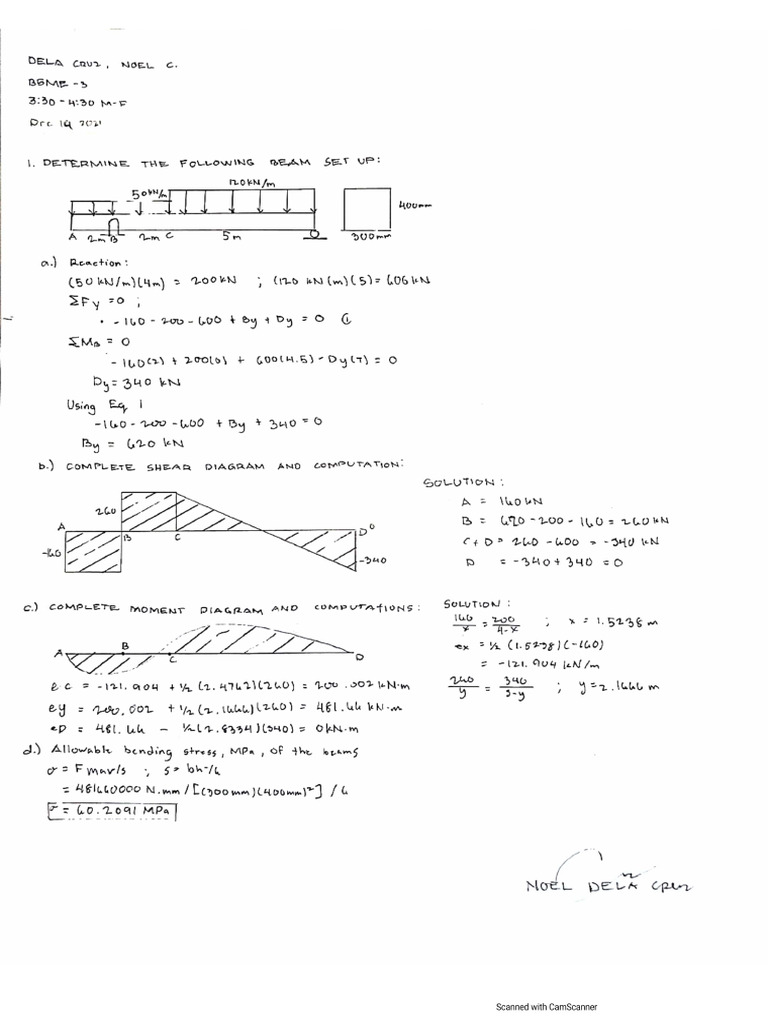 DELA CRUZ, NOEL C.
BSME -3
3:30 - 4:30 M-F
Dec 14 2021
1. DETERMINE THE FOLLOWING BEAM SET UP:
120 kN/m
50 kN/m
400mm
A 2m B 2m C 5m 300mm
a.) Reaction:
(50 kN/m)(4m) = 200 kN ; (120 kN(m)(5) = 606 kN
ΣFy = 0 ;
-160 - 200 - 600 + By + Dy = 0
ΣMB = 0
-160(2) + 200(0) + 600(4.5) - Dy(7) = 0
Dy = 340 kN
Using Eq 1
-160 - 200 - 600 + By + 340 = 0
By = 620 kN
b.) COMPLETE SHEAR DIAGRAM AND COMPUTATION:
SOLUTION:
A = 160 kN
B = 620 - 200 - 160 = 260 kN
C + D = 260 - 600 = -340 kN
D = -340 + 340 = 0
260
A B C D 0
-160
-340
c.) COMPLETE MOMENT DIAGRAM AND COMPUTATIONS:
SOLUTION:
160/x = 200/4-x ; x = 1.5238 m
ex = 1/2 (1.5238)(-160)
= -121.904 kN/m
260/y = 340/5-y ; y = 2.1666 m
A B C D
ec = -121.904 + 1/2 (2.4762)(260) = 200.002 kN·m
ey = 200.002 + 1/2 (2.1666)(260) = 481.66 kN·m
eD = 481.66 - 1/2 (2.8334)(340) = 0 kN·m
d.) Allowable bending stress, MPa, of the beams
σ = F mav/s ; s = bh²/6
= 481660000 N.mm / [(300mm)(400mm)²] / 6
σ = 60.2091 MPa
NOEL DELA CRUZ
Scanned with CamScanner